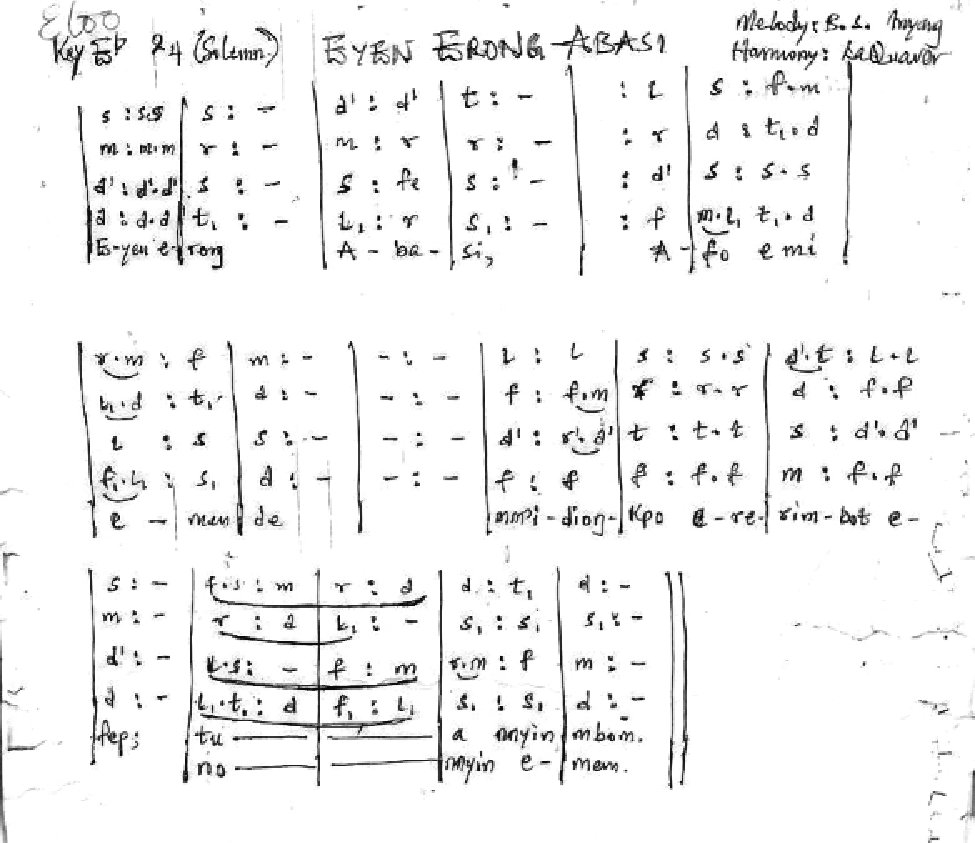 Key Eb 2/4 (Solemn) EYEN ERONG ABASI
Melody: B. E.
Harmony: LaQuavor
s : s.s | s : - | d' : d' | t : - | : l | s : f.m
m : m.m | r : - | m : r | r : - | : r | d : t₁.d
d' : d'.d' | s : - | s : fe | s : - | : d' | s : s.s
d : d.d | t₁ : - | l₁ : r | s₁ : - | : f | m.l₁ t₁.d
E-yen e-rong A-ba-si, A-fo emi
r.m : f | m : - | - : - | l : l | s : s.s | d'.t : l.l
l₁.d : t₁ | d : - | - : - | f : f.m | r : r.r | d : f.f
l : s | s : - | - : - | d' : r'.d' | t : t.t | s : d'.d'
f₁.l₁ : s₁ | d : - | - : - | f : f | f : f.f | m : f.f
e - men de mmpi-diong-kpo e-re-rim-bot e-
s : - | f.s : m | r : d | d : t₁ | d : -
m : - | r : d | l₁ : - | s₁ : s₁ | s₁ : -
d' : - | l.s : - | f : m | r.m : f | m : -
d : - | l₁.t₁ : d | f₁ : l₁ | s₁ : s₁ | d : -
fep; tu a nnyin mbom.
no nnyin e- mem.